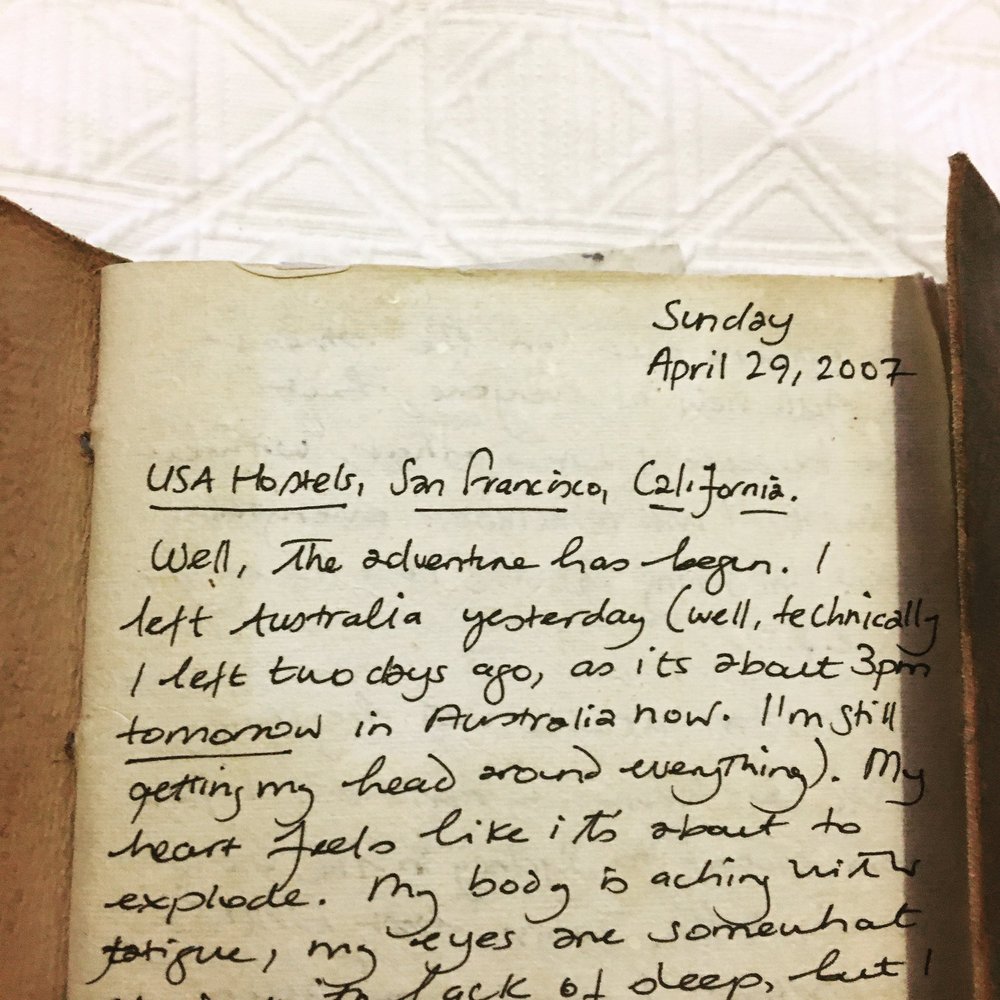 Sunday
April 29, 2007
USA Hostels, San Francisco, California.
Well, The adventure has begun. I
left Australia yesterday (well, technically
I left two days ago, as its about 3pm
tomorrow in Australia now. I'm still
getting my head around everything). My
heart feels like it's about to
explode. My body is aching with
fatigue, my eyes are somewhat
lack of sleep, but I